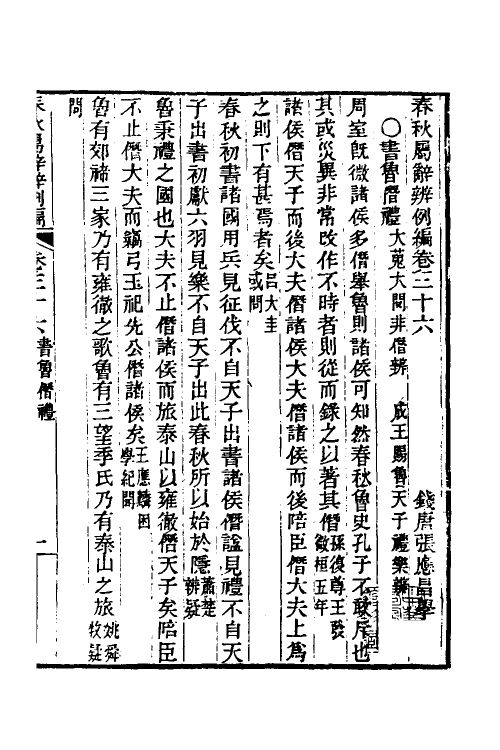 春秋屬辭辨例編卷三十六
錢唐張應昌學
○書魯僭禮 大蒐大閱非僭辨 成王賜魯天子禮樂辨
周室既微諸侯多僭舉魯則諸侯可知然春秋魯史孔子不敢斥也
其或災異非常改作不時者則從而錄之以著其僭 孫復尊王發微桓五年
諸侯僭天子而後大夫僭諸侯大夫僭諸侯而後陪臣僭大夫上爲
之則下有甚焉者矣 呂大圭或問
春秋初書諸國用兵見征伐不自天子出書諸侯僭諡見禮不自天
子出書初獻六羽見樂不自天子出此春秋所以始於隱 蕭楚辨疑
魯秉禮之國也大夫不止僭諸侯而旅泰山以雍徹僭天子矣陪臣
不止僭大夫而竊弓玉祀先公僭諸侯矣 王應麟困學紀聞
魯有郊禘三家乃有雍徹之歌魯有三望季氏乃有泰山之旅 姚舜牧疑
問
春秋屬辭辨例編 卷三十六 書魯僭禮 一